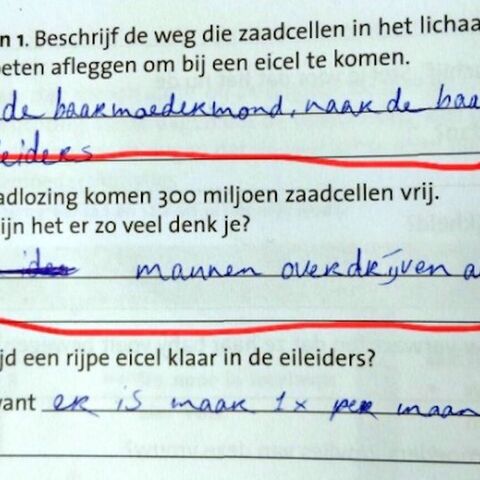 n 1. Beschrijf de weg die zaadcellen in het lichaa
oeten afleggen om bij een eicel te komen.
de baarmoedermond, naar de baa
leiders
adlozing komen 300 miljoen zaadcellen vrij.
ijn het er zo veel denk je?
mannen overdrijven a
jd een rijpe eicel klaar in de eileiders?
vant er is maar 1x per maan